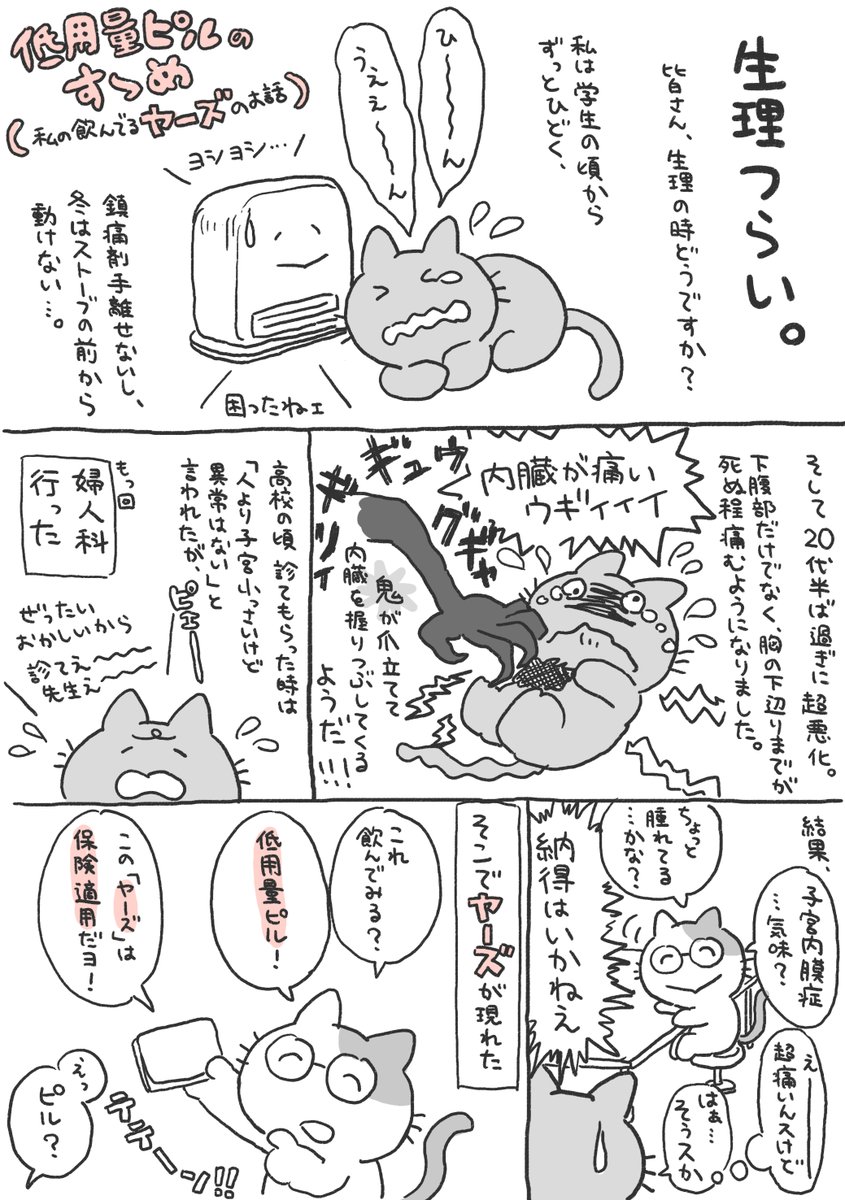 低用量ピルの
すゝめ
(私の飲んでるヤーズのお話)
生理つらい。
皆さん、生理の時どうですか?
私は学生の頃から
ずっとひどく、
ひ〜〜〜ん
うええ〜〜〜ん
ヨシヨシ…
鎮痛剤手離せないし、
冬はストーブの前から
動けない…。
困ったねェ
そして20代半ば過ぎに超悪化。
下腹部だけでなく、胸の下辺りまでが
死ぬ程痛むようになりました。
内臓が痛い
ウギィィィ
ギュウ
グギャ
ギリィ
鬼が爪立てて
内臓を握りつぶしてくる
ようだ!!!
高校の頃診てもらった時は
「人より子宮小っさいけど
異常はない」と
言われたが、
もっ回
婦人科
行った
ピェー
ぜったい
おかしいから
診てえ〜〜
先生え〜〜
結果、
子宮内膜症
…気味?
ちょっと
腫れてる
…かな?
え———
超痛いんスけど
はぁ…
そうスか
納得はいかねえ
そこでヤーズが現れた
これ
飲んでみる?
低用量ピル!
この「ヤーズ」は
保険適用だヨ!
テテーン!!
えっ
ピル?